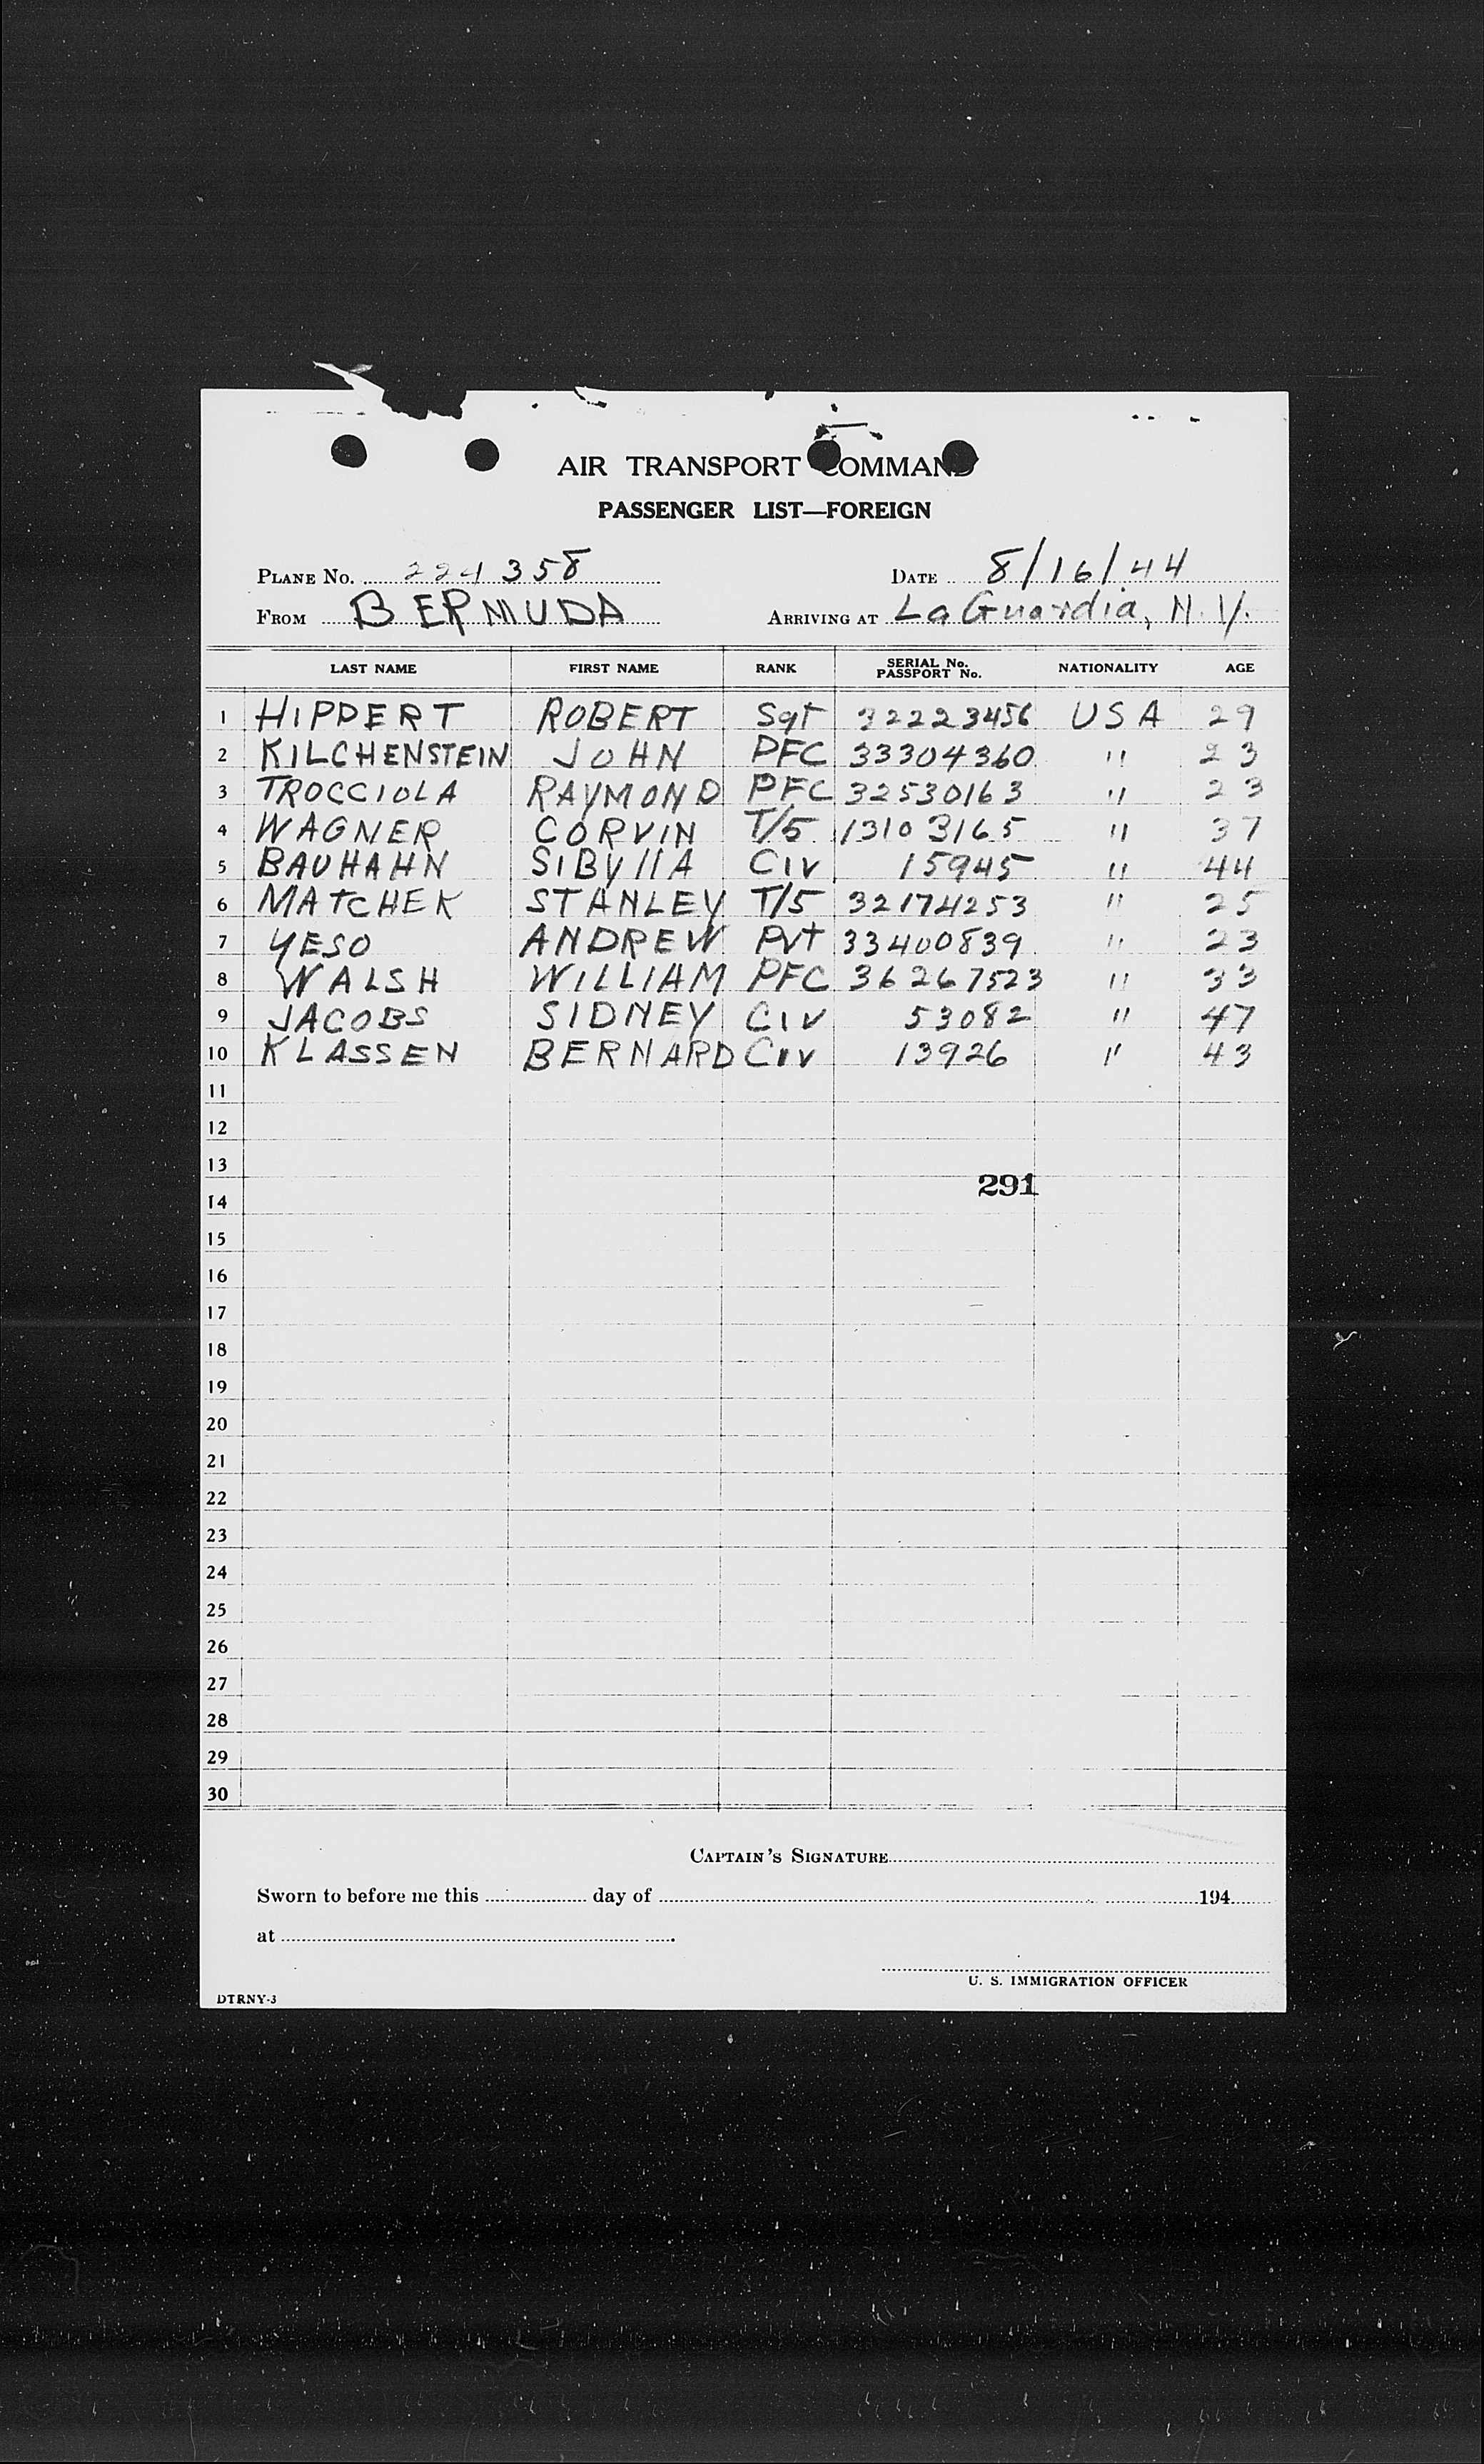 AIR TRANSPORT COMMAND
PASSENGER LIST—FOREIGN
PLANE No. 224358 DATE 8/16/44
FROM BERMUDA ARRIVING AT LaGuardia, N.Y.
LAST NAME FIRST NAME RANK SERIAL No. PASSPORT No. NATIONALITY AGE
1 HIPPERT ROBERT Sgt 32223456 USA 29
2 KILCHENSTEIN JOHN PFC 33304360 " 23
3 TROCCIOLA RAYMOND PFC 32530163 " 23
4 WAGNER CORVIN T/5 13103165 " 37
5 BAUHAHN SIBYllA Civ 15945 " 44
6 MATCHEK STANLEY T/5 32174253 " 25
7 YESO ANDREW Pvt 33400839 " 23
8 WALSH WILLIAM PFC 36267523 " 33
9 JACOBS SIDNEY Civ 53082 " 47
10 KLASSEN BERNARD Civ 13926 " 43
11
12
13
291
14
15
16
17
18
19
20
21
22
23
24
25
26
27
28
29
30
CAPTAIN'S SIGNATURE
Sworn to before me this day of 194
at
U. S. IMMIGRATION OFFICER
DTRNY-3